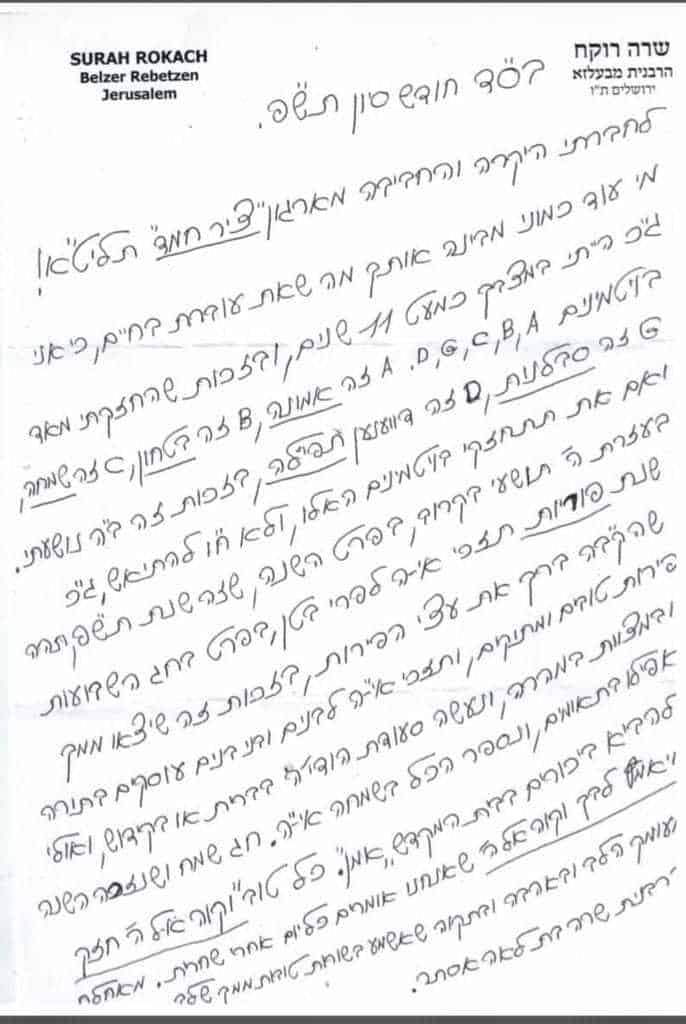 SURAH ROKACH
Belzer Rebetzen
Jerusalem
שרה רוקח
הרבנית מבעלזא
ירושלים ת"ו
בס"ד חודש סיון תש"פ.
לחברתי היקרה והחביבה מארגון "ציר חמד" תליט"א!
מי עוד כמוני מבינה אותך מה שאת עוברת בחיים, כי אני
ג"כ הייתי במצבך כמעט 11 שנים, ובזכות שהחזקתי מאד
בויטמינים A, B, C, G, D. A זה אמונה, B זה בטחון, C זה שמחה,
G זה סבלנות, D זה דווענען תפילה, בזכות זה ב"ה נושעתי.
ואם את תתחזקי בויטמינים האלו, ולא ח"ו להתיאש, ג"כ
בעזרת ה' תושעי בקרוב, בפרט השנה, שזה שנת תש"פ, תהיה
שנת פוריות תזכי אי"ה לפרי בטן, בפרט בחג השבועות
שהקב"ה ברך את עצי הפירות, בזכות זה שיצאו ממך
פירות טובים ומתוקים, ותזכי אי"ה לבנים ובני בנים עוסקים בתורה
ובמצוות במהרה, ונעשה סעודת הודי'ה בברית או בקידוש, ואולי
אפילו בתאומים, ונספר הכל בשמחה אי"ה. חג שמח ושנזכה השנה
להביא ביכורים בבית המקדש, אמן". כל טוב "וקוה אל ה' חזק
ויאמץ לבך וקוה אל ה'" שאנחנו אומרים כל יום אחרי שחרית. מאחלת
מעומק הלב ובתקוה שאשמע בשורות טובות ממך שלך
רבנית שרה בת לאה אסתר.